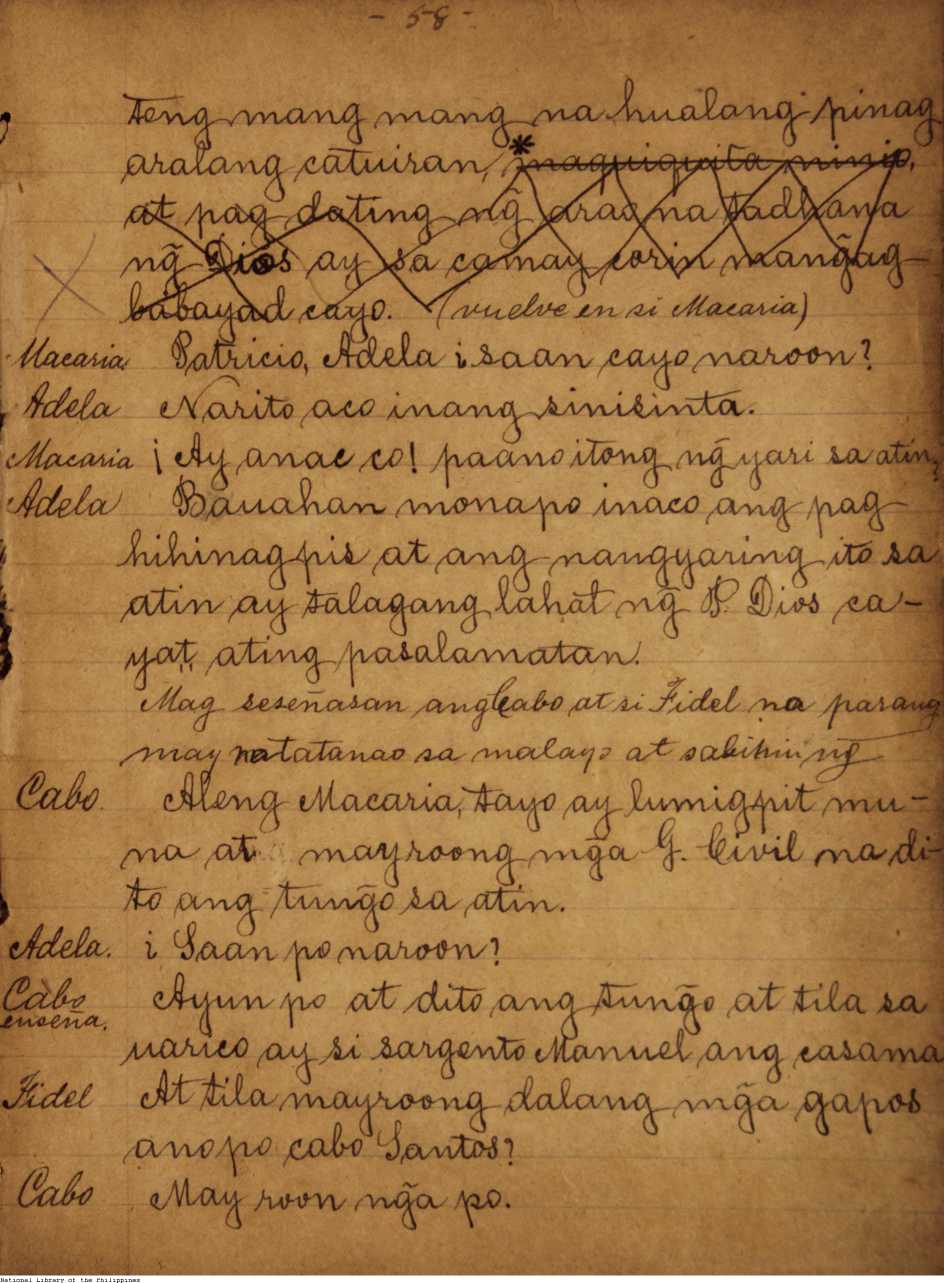 - 58 -
teng mang mang na hualang pinag
aralang catuiran, * naquiquita ninio,
at pag dating ng̃ arao na tadhana
ng̃ Dios ay sa camay corin mang̃ag-
babayad cayo. (vuelve en si Macaria)
Macaria. Patricio, Adela ¿saan cayo naroon?
Adela Narito aco inang sinisinta.
Macaria ¡Ay anac co! paano itong ng̃yari sa atin,
Adela Bauahan monapo inaco ang pag-
hihinagpis at ang nangyaring ito sa
atin ay talagang lahat ng̃ P. Dios ca-
yat,, ating pasalamatan.
Mag señasan ang Cabo at si Fidel na parang
may natatanao sa malayo at sabihin ng̃
Cabo. Aleng Macaria, tayo ay lumigpit mu-
na at mayroong mg̃a G. Civil na di-
to ang tung̃o sa atin.
Adela. ¿Saan po naroon?
Cabo Ayun po at dito ang tung̃o at tila sa
enseña.
uarico ay si sargento Manuel ang casama
Fidel At tila mayroong dalang mg̃a gapos
anopo cabo Santos?
Cabo May roon ng̃a po.
National Library of the Philippines